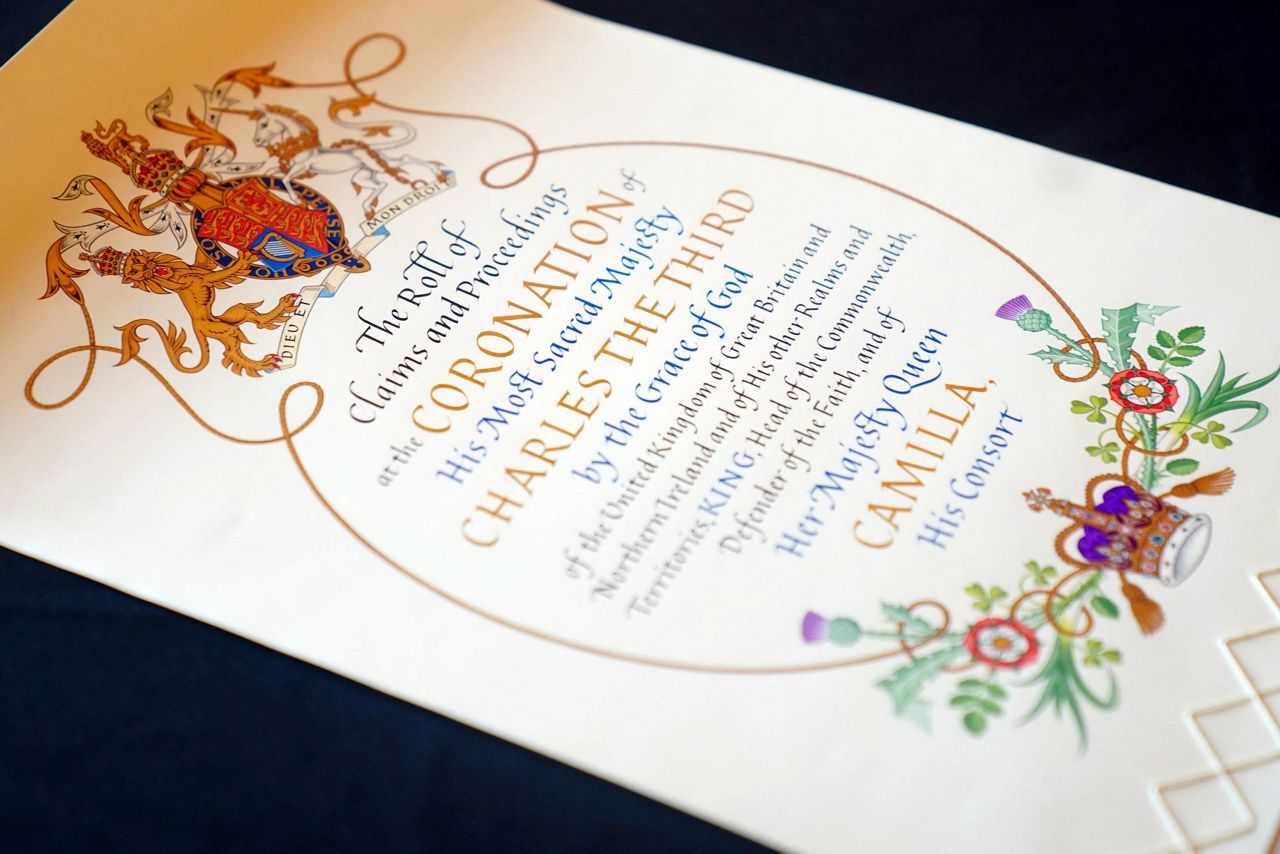 DIEU ET
MON DROIT
The Roll of
Claims and Proceedings
at the CORONATION of
His Most Sacred Majesty
CHARLES THE THIRD
by the Grace of God
of the United Kingdom of Great Britain and
Northern Ireland and of His other Realms and
Territories, KING, Head of the Commonwealth,
Defender of the Faith, and of
Her Majesty Queen
CAMILLA,
His Consort